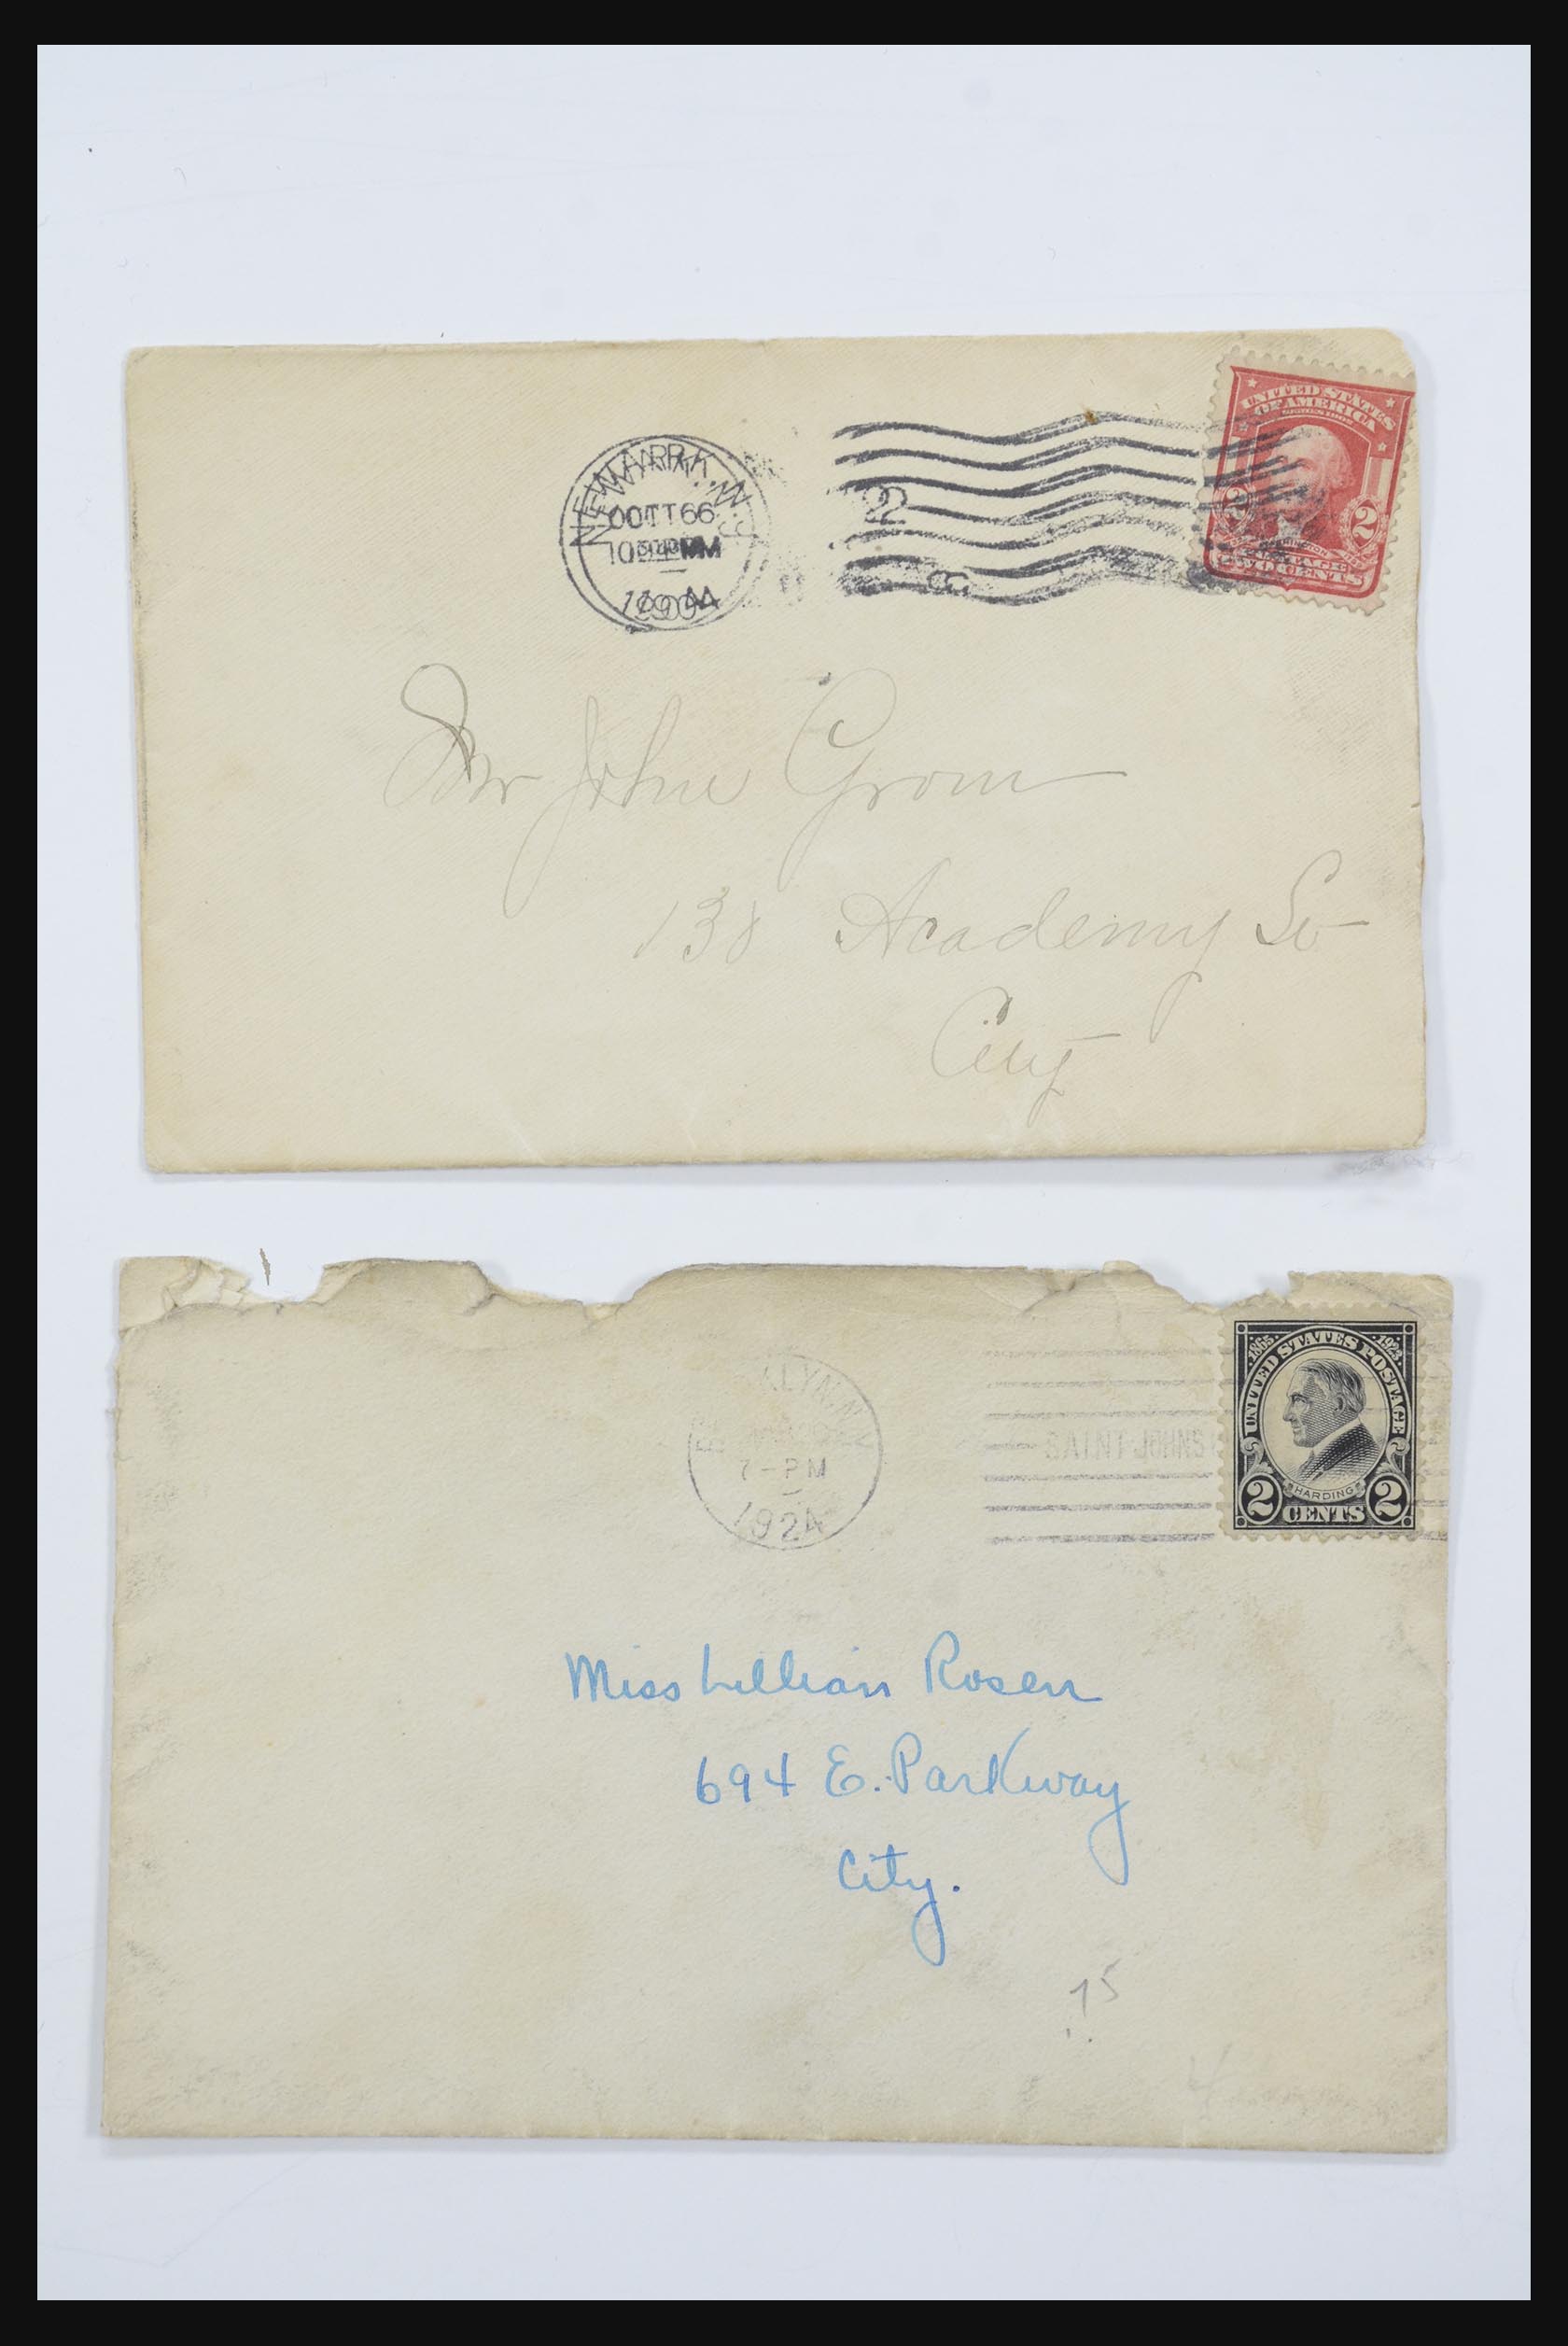 NEWARK, N.J.
OCT 6
1904
2
UNITED STATES
OF AMERICA
SERIES 1902
2 2
POSTAGE
TWO CENTS
Mr John Grom
138 Academy St
City
KLYN, N.Y.
7-PM
1924
SAINT JOHNS
1865 1923
UNITED STATES POSTAGE
HARDING
2 CENTS 2
Miss Lillian Rosen
694 E. Parkway
City.
75
4